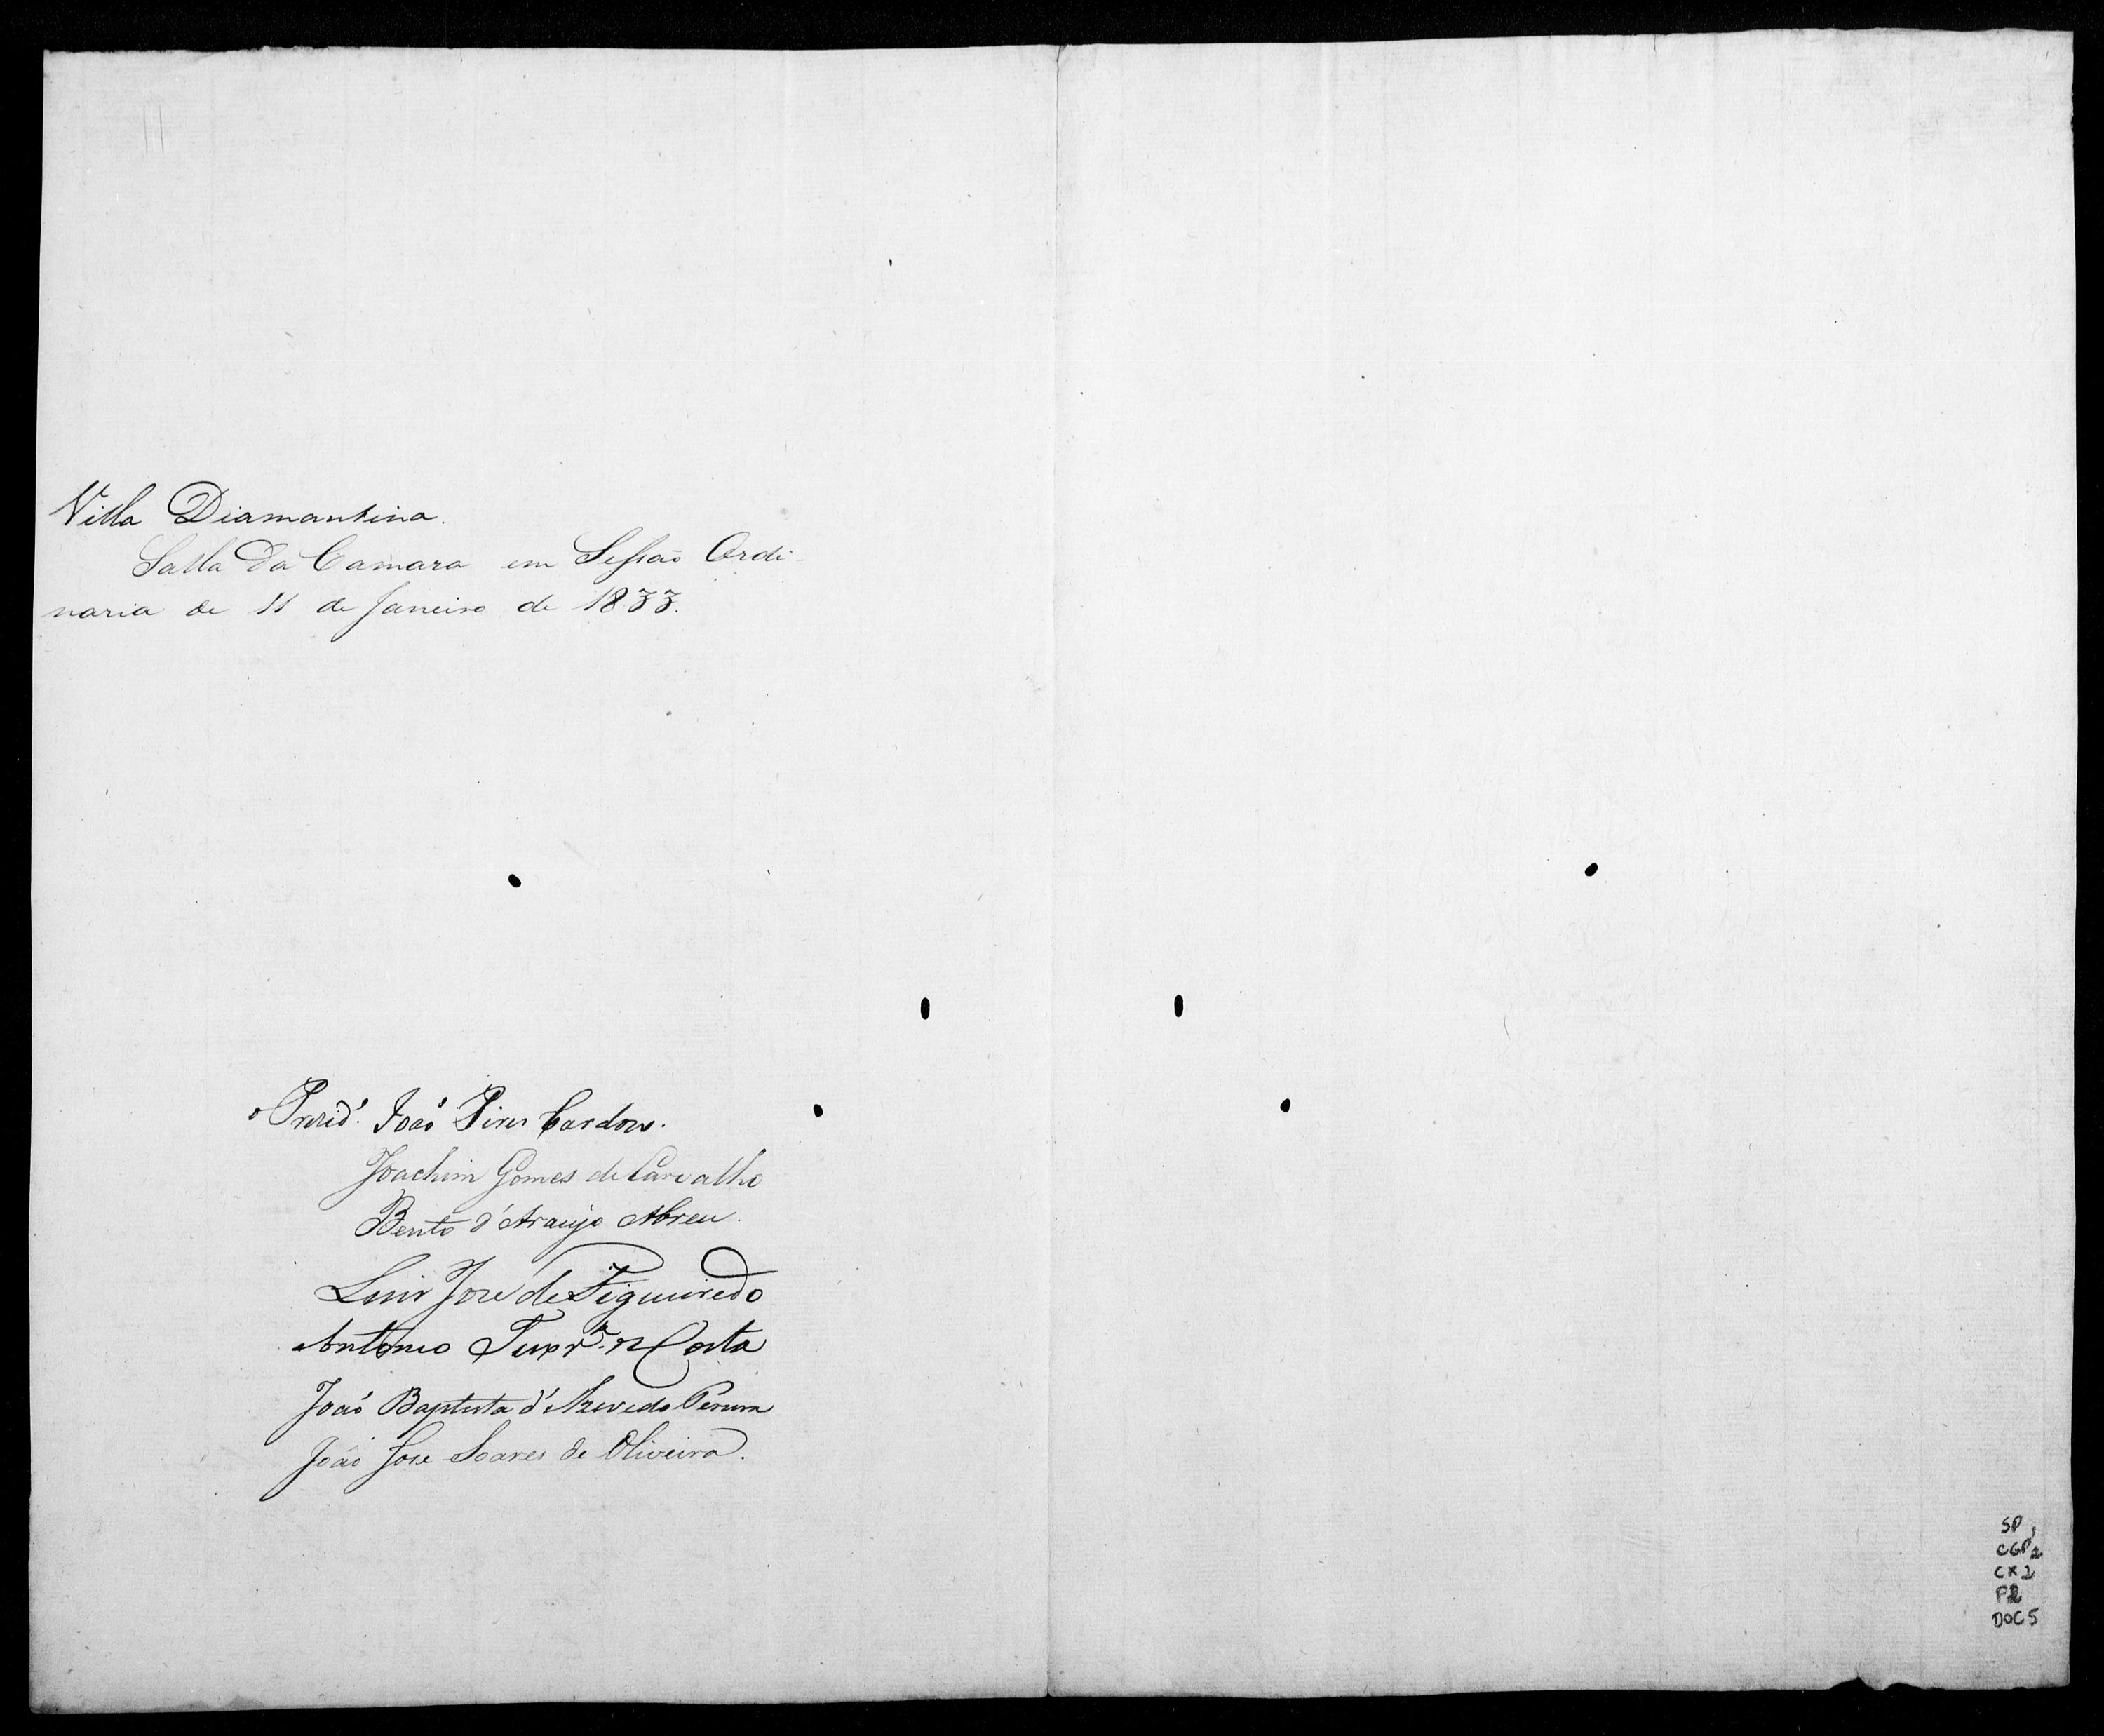 Villa Diamantina.
Salla da Camara em Sessaõ Ordi-
naria de 11 de Janeiro de 1833.
o Prezid.e Joaõ Pires Cardozo.
Joachim Gomes de Carvalho
Bento d'Araujo Abreu.
Luis Joze de Figueiredo
Antonio Costa
Joaõ Baptista d'Azevedo
Joaõ Joze Soares de Oliveira.
SP
CGP
CX 2
P2
DOC 5